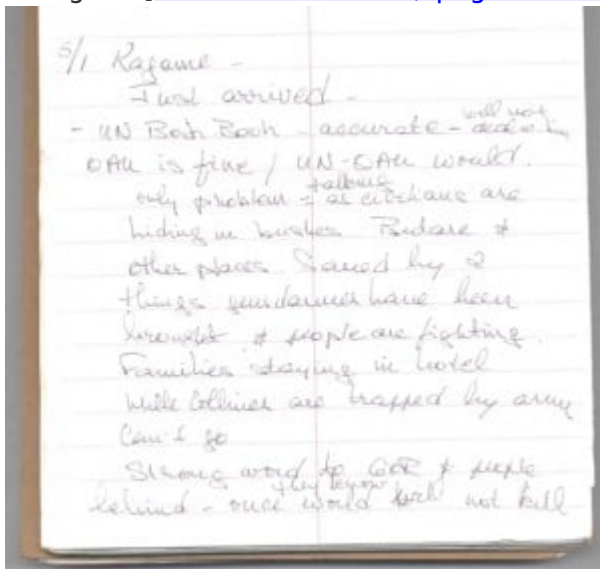 5/1 Kagame -
Just arrived -
- UN Booh Booh - accurate - will not
OAU is fine / UN-OAU would.
only problem = talking as civilians are
hiding in bushes Butare &
other places Saved by 2
things gendarmes have been
brought & people are fighting.
Families staying in hotel
Mille Collines are trapped by army
Can't go
Strong word to GOR & people
behind - once they know world not kill